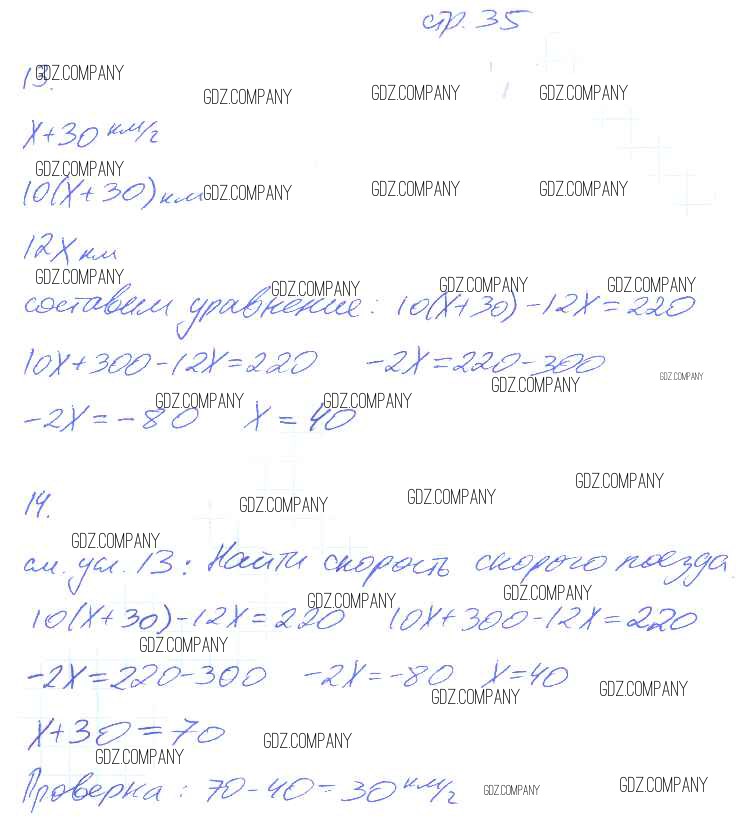 стр. 35
13. GDZ.COMPANY
GDZ.COMPANY GDZ.COMPANY GDZ.COMPANY
x+30 км/г
GDZ.COMPANY
10(x+30) км GDZ.COMPANY GDZ.COMPANY GDZ.COMPANY
12x км
GDZ.COMPANY GDZ.COMPANY GDZ.COMPANY GDZ.COMPANY
составим уравнение: 10(x+30)-12x=220
10x+300-12x=220 -2x=220-300
GDZ.COMPANY GDZ.COMPANY
GDZ.COMPANY GDZ.COMPANY
-2x=-80 x=40
GDZ.COMPANY
14. GDZ.COMPANY GDZ.COMPANY
GDZ.COMPANY
см. усл. 13: Найти скорость скорого поезда.
GDZ.COMPANY GDZ.COMPANY
10(x+30)-12x=220 10x+300-12x=220
GDZ.COMPANY
-2x=220-300 -2x=-80 x=40
GDZ.COMPANY GDZ.COMPANY
x+30=70
GDZ.COMPANY GDZ.COMPANY
Проверка: 70-40=30 км/г GDZ.COMPANY GDZ.COMPANY